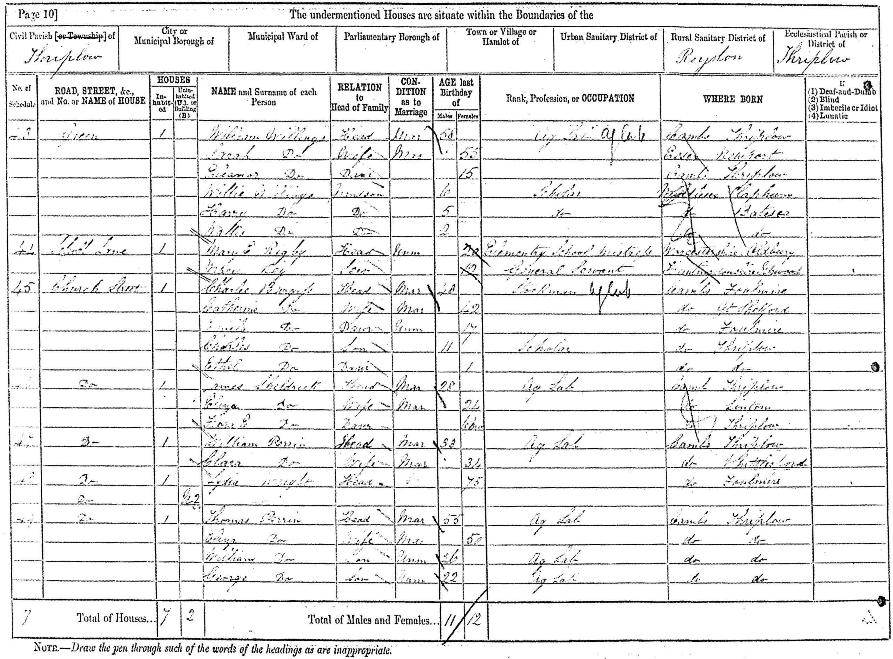 Page 10] The undermentioned Houses are situate within the Boundaries of the
Civil Parish [or Township] of City or Municipal Borough of Municipal Ward of Parliamentary Borough of Town or Village or Hamlet of Urban Sanitary District of Rural Sanitary District of Ecclesiastical Parish or District of
Thriplow Royston Thriplow
No. of Schedule ROAD, STREET, &c., and No. or NAME of HOUSE HOUSES Inhabited Uninhabited (U.), or Building (B.) NAME and Surname of each Person RELATION to Head of Family CONDITION as to Marriage AGE last Birthday of Males Females Rank, Profession, or OCCUPATION WHERE BORN If (1) Deaf-and-Dumb (2) Blind (3) Imbecile or Idiot (4) Lunatic
43 Green 1 William Willings Head Mar 58 Ag Lab Ag Lab Cambs Thriplow
Sarah Do Wife Mar 55 Essex Newport
Eleanor Do Daur 15 Camb Thriplow
Willie Willings Grandson 6 Scholar Middlesex Clapham
Harry Do Do 5 do do Battersea
Do Do 2 do do
44 School Lane 1 Mary E Rigby Head Unm Elementry School Mistress Worcestershire Oldbury
Serv General Servant
45 Church Street 1 Charles Head Mar 48 Stockman Ag Lab Cambs Foulmire
Catherine Do Wife Mar 42 do Gt Shelford
Do Daur Unm 17 do Foulmire
Charles Do Son 11 Scholar do Thriplow
Ethel Do Daur 1 do do
Do 1 James Sheldrick Head Mar 28 Ag Lab Camb Thriplow
Eliza Do Wife Mar 24 do Linton
Do Daur Thriplow
47 Do 1 William Perrin Head Mar 33 Ag Lab Cambs Thriplow
Clara Do Wife Mar 34 do Whittlesford
48 Do 1 Lydia Wright Head 75 do Foulmire
Do 2
49 Do 1 Thomas Perrin Head Mar 55 Ag Lab Cambs Thriplow
Eliza Do Wife Mar 50 do do
William Do Son Unm 26 Ag Lab do do
George Do Son Unm 22 Ag Lab do do
7 Total of Houses... 7 2 Total of Males and Females... 11 12
NOTE.—Draw the pen through such of the words of the headings as are inappropriate.